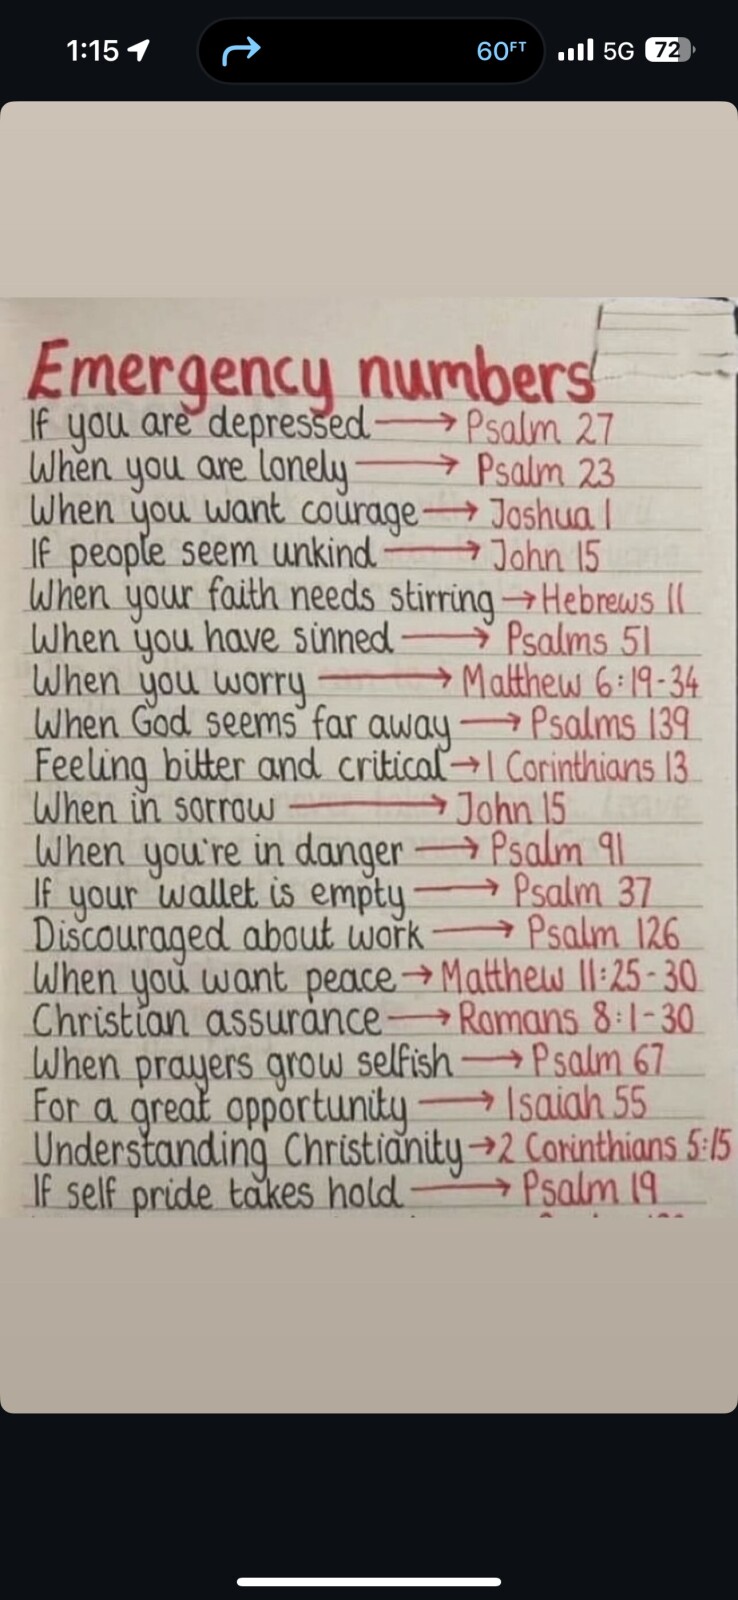 1:15
60FT
5G
72
Emergency numbers
If you are depressed → Psalm 27
When you are lonely → Psalm 23
When you want courage → Joshua 1
If people seem unkind → John 15
When your faith needs stirring → Hebrews 11
When you have sinned → Psalms 51
When you worry → Matthew 6:19-34
When God seems far away → Psalms 139
Feeling bitter and critical → 1 Corinthians 13
When in sorrow → John 15
When you're in danger → Psalm 91
If your wallet is empty → Psalm 37
Discouraged about work → Psalm 126
When you want peace → Matthew 11:25-30
Christian assurance → Romans 8:1-30
When prayers grow selfish → Psalm 67
For a great opportunity → Isaiah 55
Understanding Christianity → 2 Corinthians 5:15
If self pride takes hold → Psalm 19